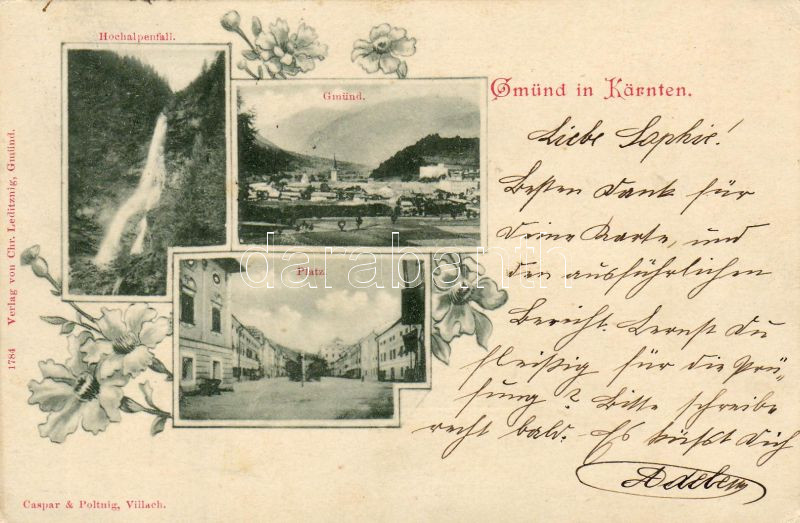 Hochalpenfall.
Gmünd.
Gmünd in Kärnten.
Platz.
Liebe Sophie!
Besten Dank für
Deine Karte, und
den ausführlichen
Bericht. Lernst Du
fleißig für die Prü-
fung? Bitte schreibe
recht bald. Es küsst Dich
1784 Verlag von Chr. Leditznig, Gmünd.
Caspar & Poltnig, Villach.
darabanth